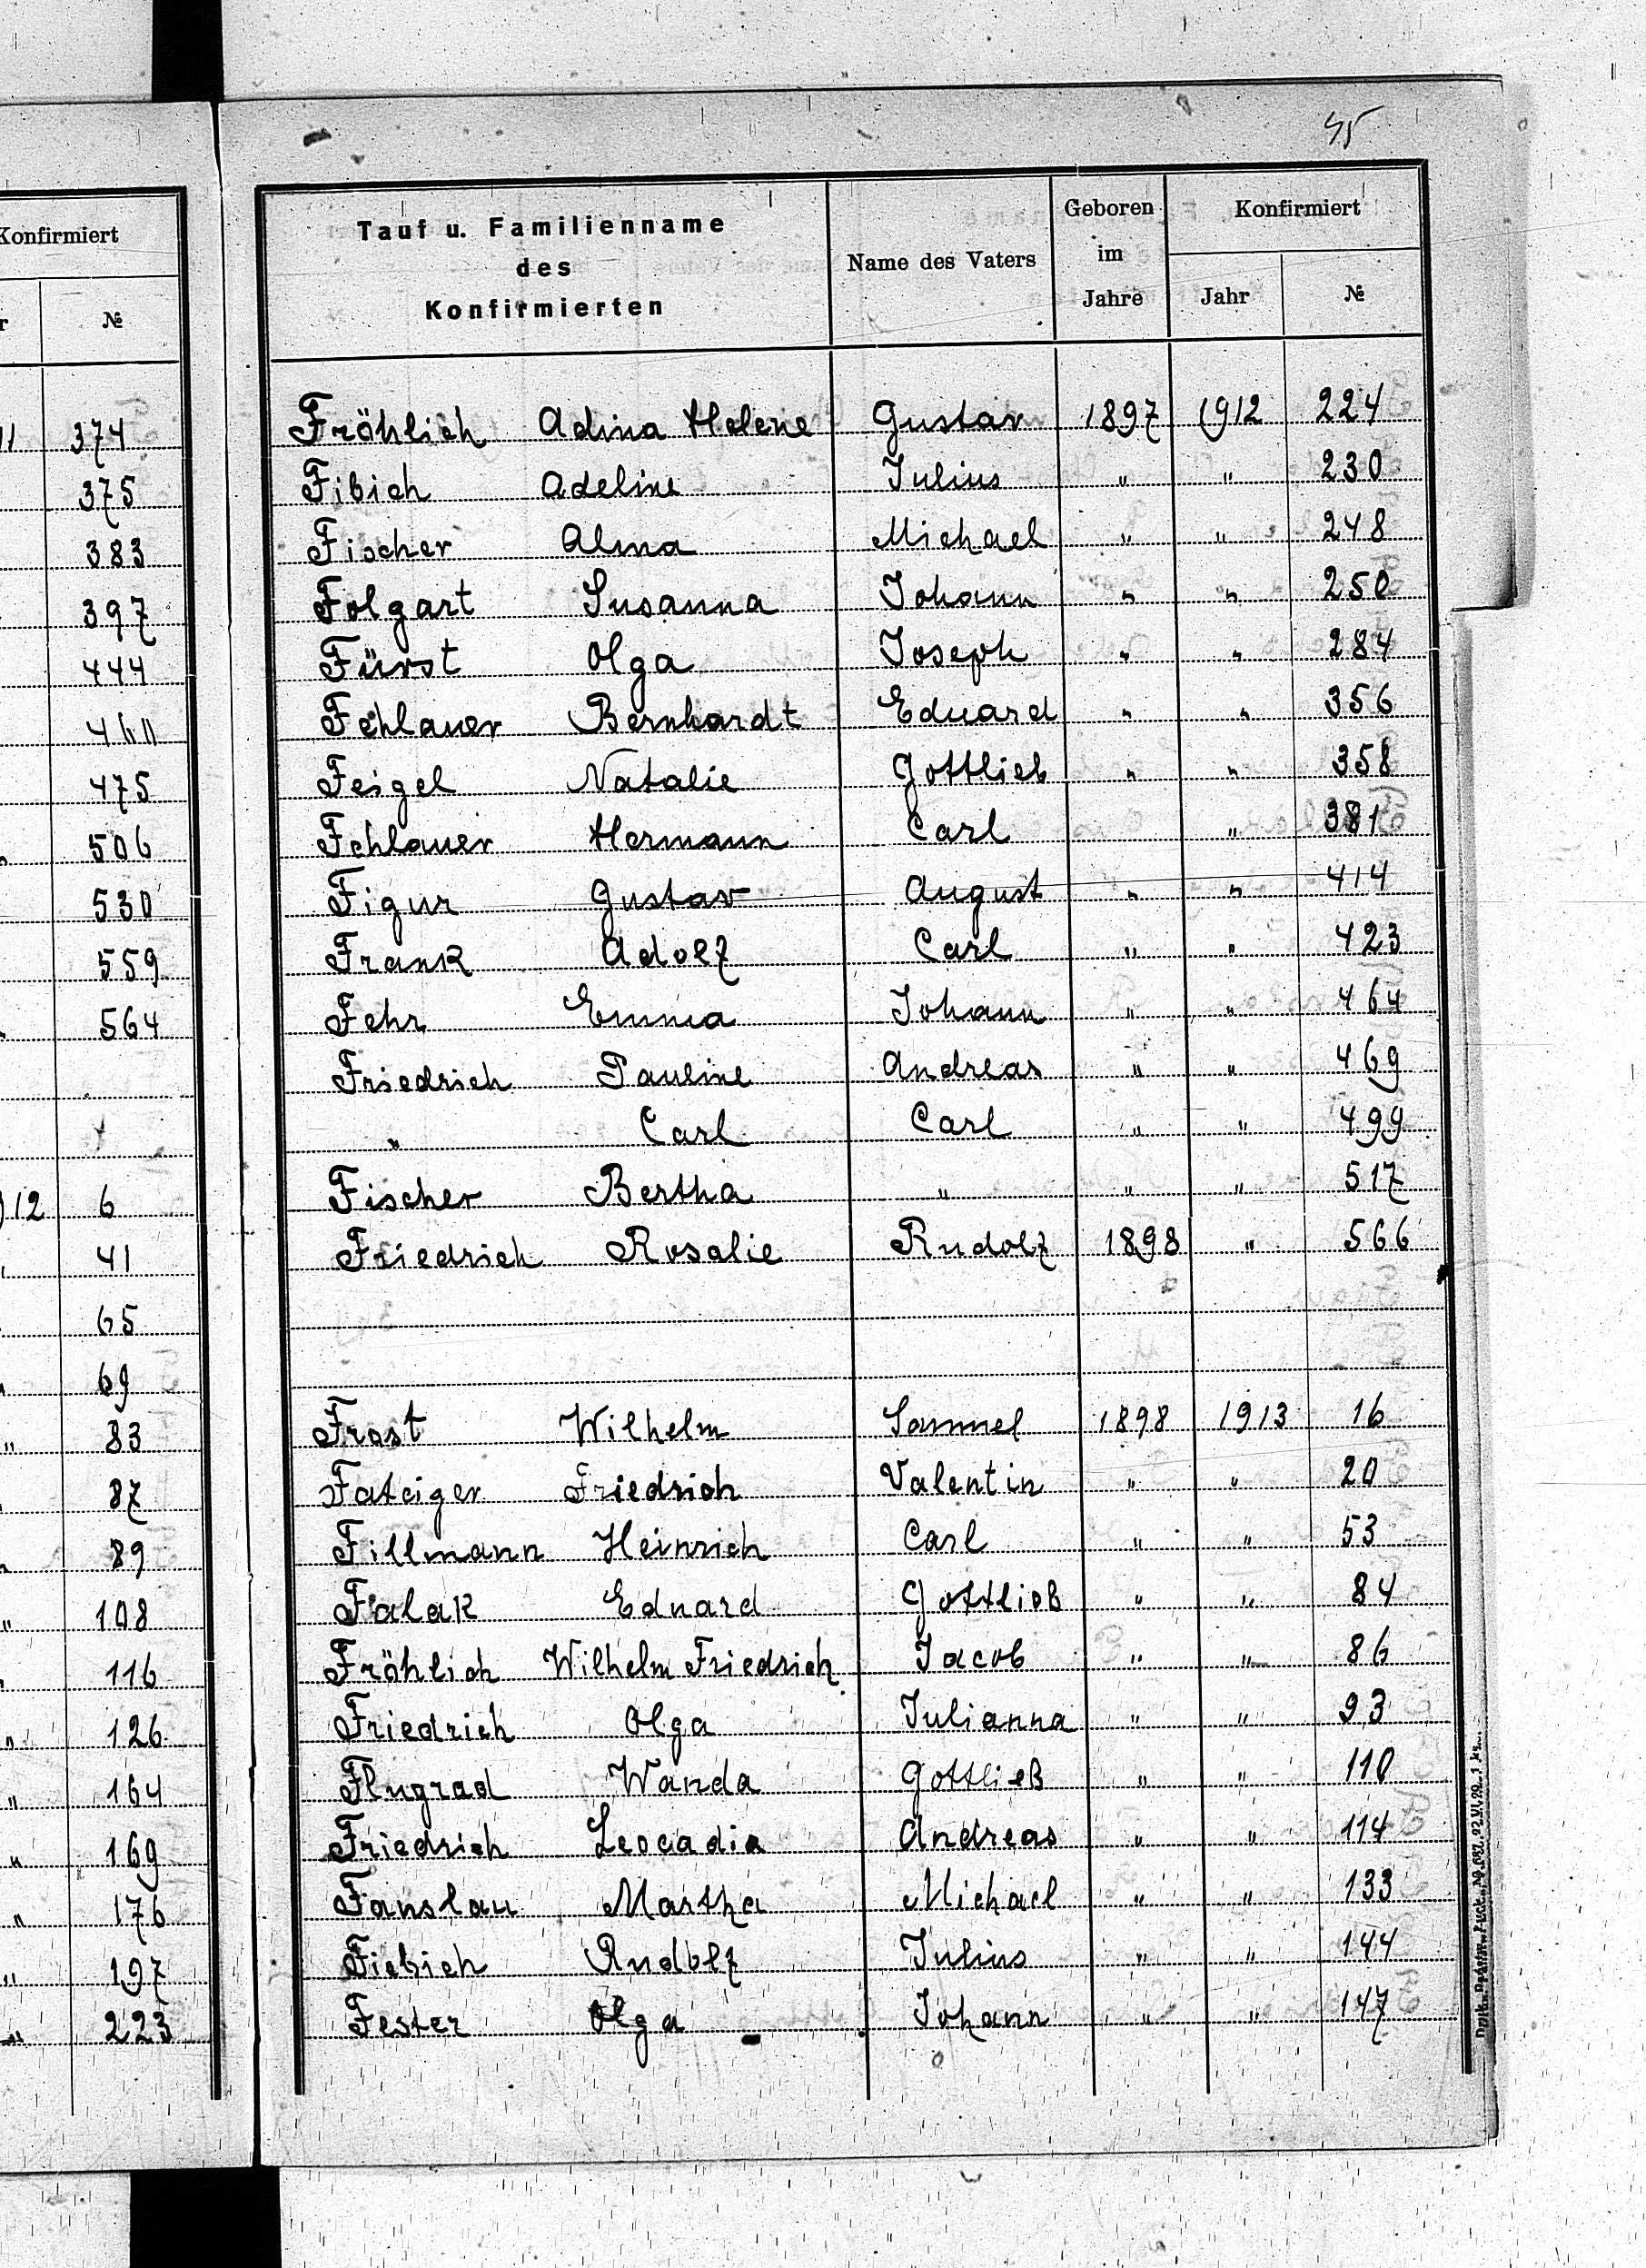 Konfirmiert
№
11 374
375
383
397
444
460
475
506
530
559
564
12 6
41
65
69
" 83
87
89
" 108
116
" 126
" 164
" 169
" 176
" 197
" 223
45
Tauf u. Familienname des Konfirmierten | Name des Vaters | Geboren im Jahre | Konfirmiert Jahr | №
Fröhlich Adina Helene Gustav 1897 1912 224
Fibich Adeline Julius " " 230
Fischer Alma Michael " " 248
Folgart Susanna Johann " " 250
Fürst Olga Joseph " " 284
Fehlauer Bernhardt Eduard " " 356
Feigel Natalie Gottlieb " " 358
Fehlauer Hermann Carl " 381
Figur Gustav August " " 414
Frank Adolf Carl " " 423
Fehr Emma Johann " " 464
Friedrich Pauline Andreas " " 469
" Carl Carl " " 499
Fischer Bertha " " " 517
Friedrich Rosalie Rudolf 1898 " 566
Frost Wilhelm Samuel 1898 1913 16
Fateiger Friedrich Valentin " " 20
Fillmann Heinrich Carl " " 53
Falak Eduard Gottlieb " " 84
Fröhlich Wilhelm Friedrich Jacob " " 86
Friedrich Olga Julianna " " 93
Flugrad Wanda Gottlieb " " 110
Friedrich Leocadia Andreas " " 114
Fanslau Martha Michael " " 133
Fiebich Rudolf Julius " " 144
Fester Olga Johann " " 147